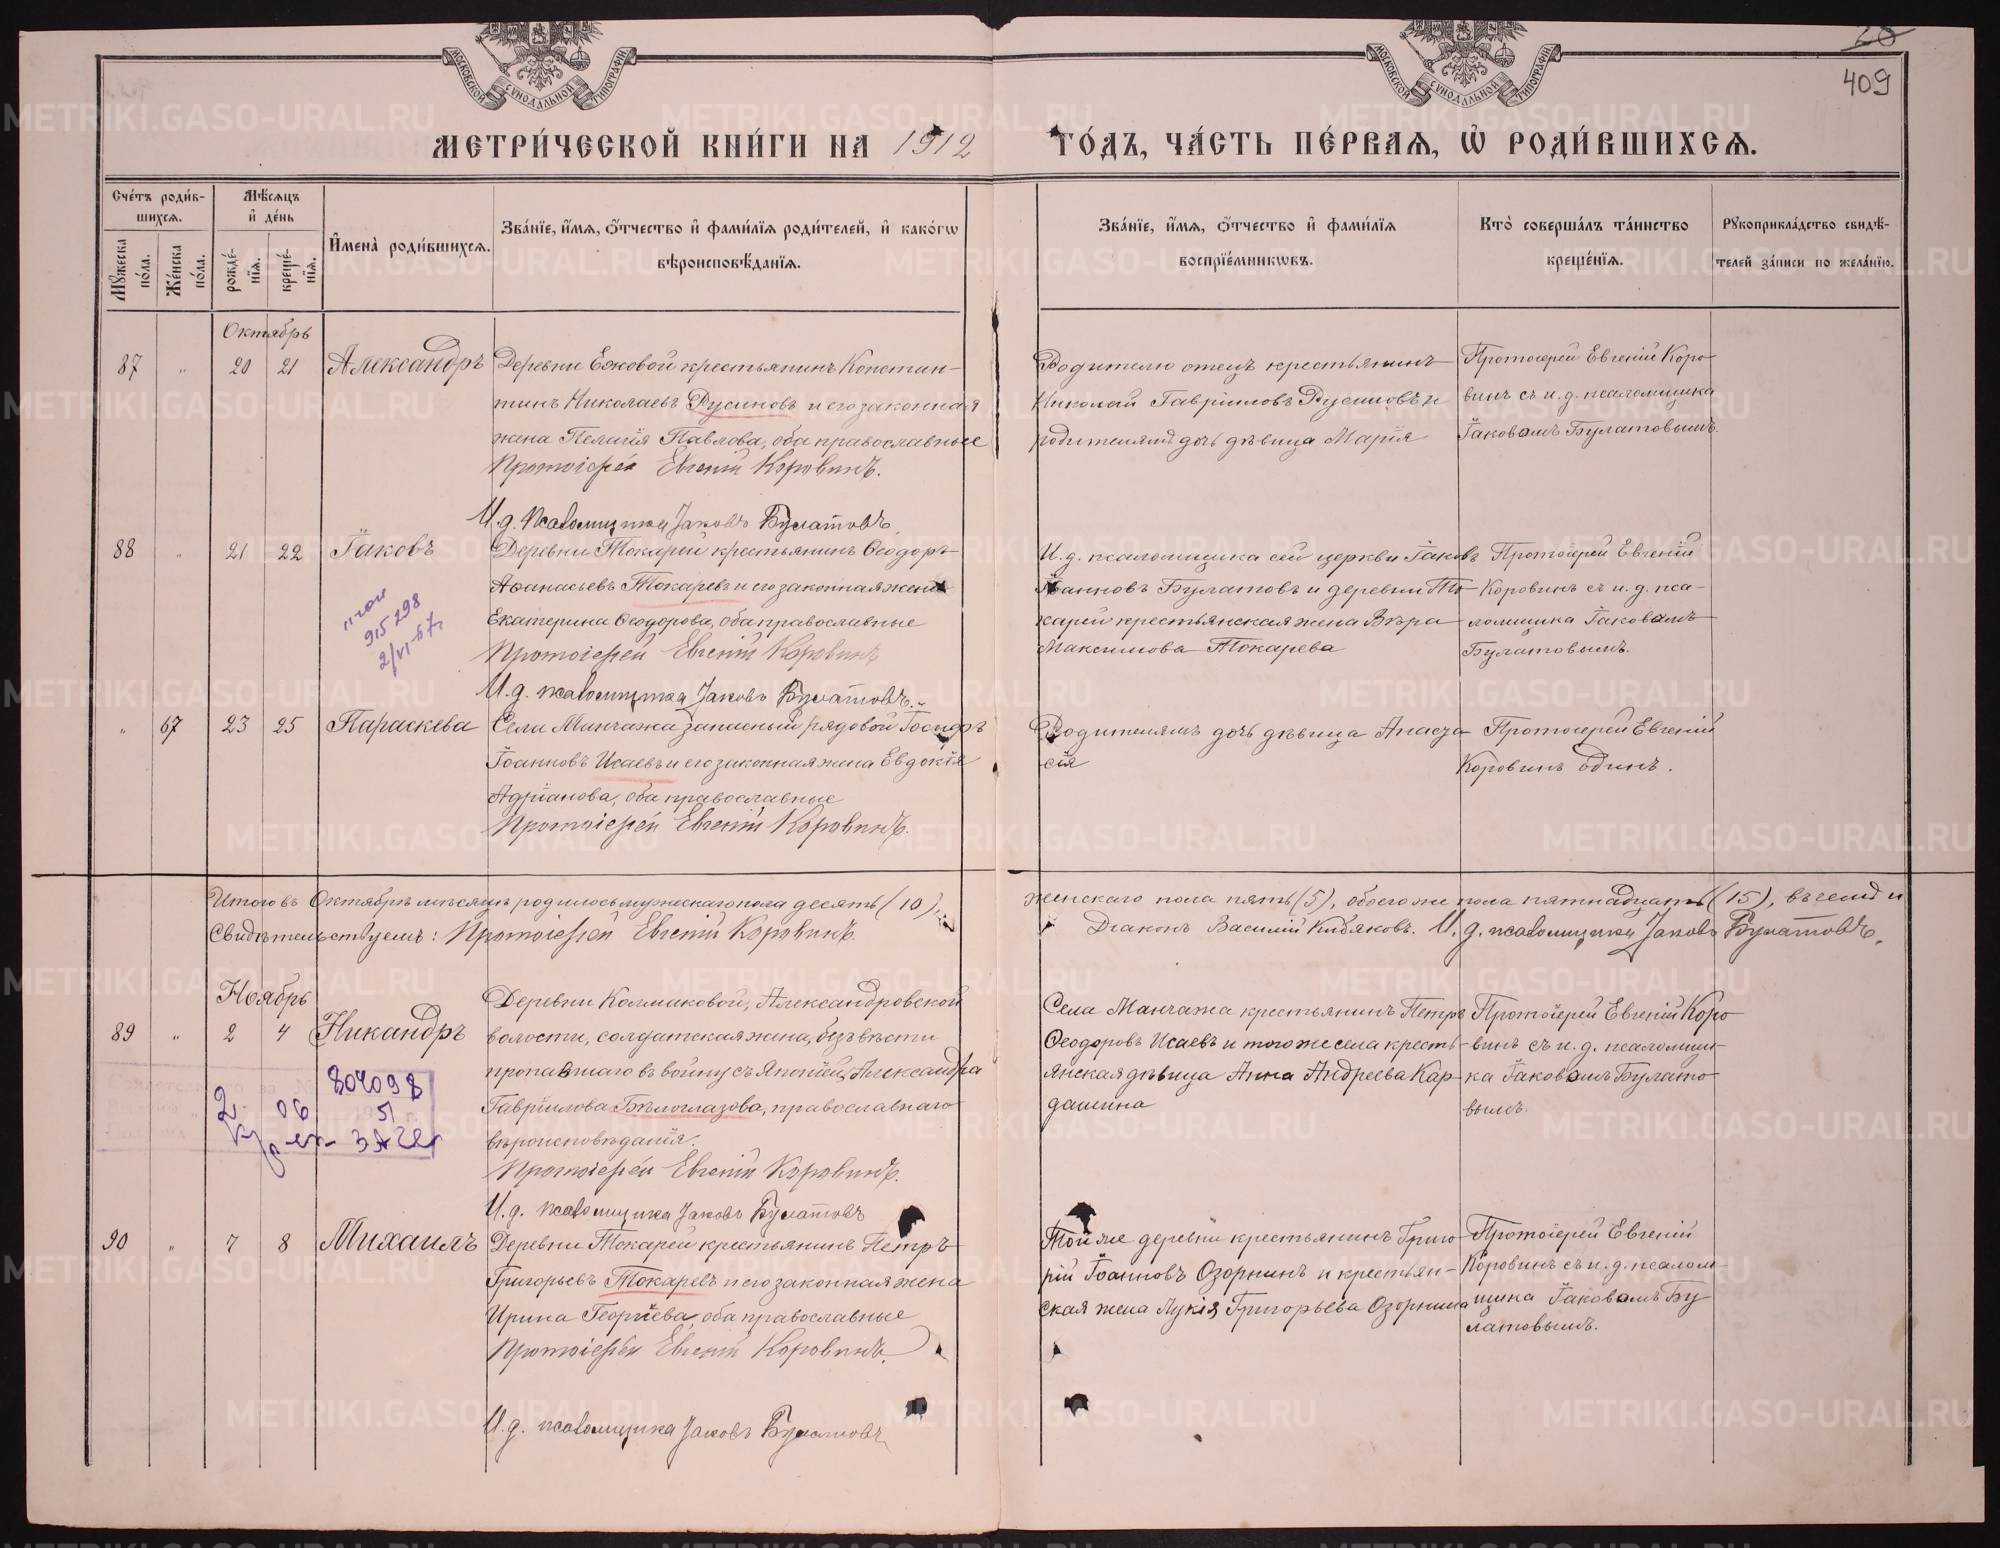 МОСКОВСКОЙ СѴНОДАЛЬНОЙ ТИПОГРАФІИ
МОСКОВСКОЙ СѴНОДАЛЬНОЙ ТИПОГРАФІИ
20
409
МЕТРИ́ЧЕСКОЙ КНИ́ГИ НА 1912 ГО́ДЪ, ЧА́СТЬ ПЕ́РВАѦ, Ѡ҆ РОДИ́ВШИХСѦ.
Сче́тъ роди́в-
шихсѧ.
Мꙋжеска по́ла.
Же́нска по́ла.
Мѣ́сѧцъ
и҆ де́нь
рожде́-
нїѧ.
креще́-
нїѧ.
И҆мена̀ роди́вшихсѧ.
Зва́нїе, и҆́мѧ, ѻ҆́тчество и҆ фами́лїѧ роди́телей, и҆ како́гѡ
вѣроисповѣ́данїѧ.
Зва́нїе, и҆́мѧ, ѻ҆́тчество и҆ фами́лїѧ
воспрїе́мникѡвъ.
Кто̀ соверша́лъ та́инство
креще́нїѧ.
Рꙋкоприкла́дство свидѣ́-
телей за́писи по жела́нїю.
Октябрь
87 „ 20 21 Александръ
Деревни Ежовой крестьянинъ Констан-
тинъ Николаевъ Русиновъ и его законная
жена Пелагія Павлова, оба православные
Протоіерей Евгеній Коровинъ.
И.д. псаломщика Іаковъ Булатовъ.
Родителю отецъ крестьянинъ
Николай Гавріиловъ Русиновъ и
родителямъ дочь дѣвица Марія
Протоіерей Евгеній Коро-
винъ съ и.д. псаломщика
Іаковомъ Булатовымъ.
88 „ 21 22 Іаковъ
915298
2/VI-67г
Деревни Токарей крестьянинъ Ѳеодоръ
Аѳанасьевъ Токаревъ и его законная жена
Екатерина Ѳеодорова, оба православные
Протоіерей Евгеній Коровинъ
И.д. псаломщика Іаковъ Булатовъ.
И.д. псаломщика сей церкви Іаковъ
Іоанновъ Булатовъ и деревни То-
карей крестьянская жена Вѣра
Максимова Токарева
Протоіерей Евгеній
Коровинъ съ и.д. пса-
ломщика Іаковомъ
Булатовымъ.
„ 67 23 25 Параскева
Села Манчажа запасный рядовой Іосифъ
Іоанновъ Исаевъ и его законная жена Евдокія
Адріанова, оба православные
Протоіерей Евгеній Коровинъ.
Родителямъ дочь дѣвица Анаста-
сія
Протоіерей Евгеній
Коровинъ одинъ.
Итого въ Октябрѣ мѣсяцѣ родилось мужескаго пола десять (10), женскаго пола пять (5), обоего же пола пятнадцать (15), въ чемъ и
Свидѣтельствуемъ: Протоіерей Евгеній Коровинъ. Діаконъ Василій Кибяковъ. И.д. псаломщика Іаковъ Булатовъ.
Ноябрь
89 „ 2 4 Никандръ
804098
2 06 51
ЗАГС
Деревни Колмаковой, Александровской
волости, солдатская жена, безъ вѣсти
пропавшаго въ войну съ Японіей, Александра
Гавріилова Бѣлоглазова, православнаго
вѣроисповѣданія.
Протоіерей Евгеній Коровинъ.
И.д. псаломщика Іаковъ Булатовъ
Села Манчажа крестьянинъ Петръ
Ѳеодоровъ Исаевъ и того же села кресть-
янская дѣвица Анна Андреева Кар-
дашина
Протоіерей Евгеній Коро-
винъ съ и.д. псаломщи-
ка Іаковомъ Булато-
вымъ.
90 „ 7 8 Михаилъ
Деревни Токарей крестьянинъ Петръ
Григорьевъ Токаревъ и его законная жена
Ирина Георгіева, оба православные
Протоіерей Евгеній Коровинъ.
И.д. псаломщика Іаковъ Булатовъ
Той же деревни крестьянинъ Григо-
рій Іоанновъ Озорнинъ и крестьян-
ская жена Лукія Григорьева Озорнина
Протоіерей Евгеній
Коровинъ съ и.д. псалом-
щика Іаковомъ Бу-
латовымъ.
METRIKI.GASO-URAL.RU